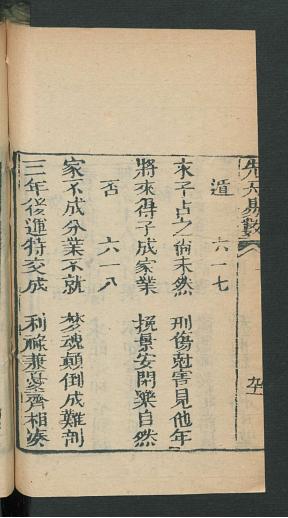 先天易數
遁 六一七
求子占之尚未然 刑傷尅害見他年
將來得子成家業 晚景安閑樂自然
否 六一八
家不成分業不就 梦魂顛倒成難剖
三年後運特交成 利祿兼